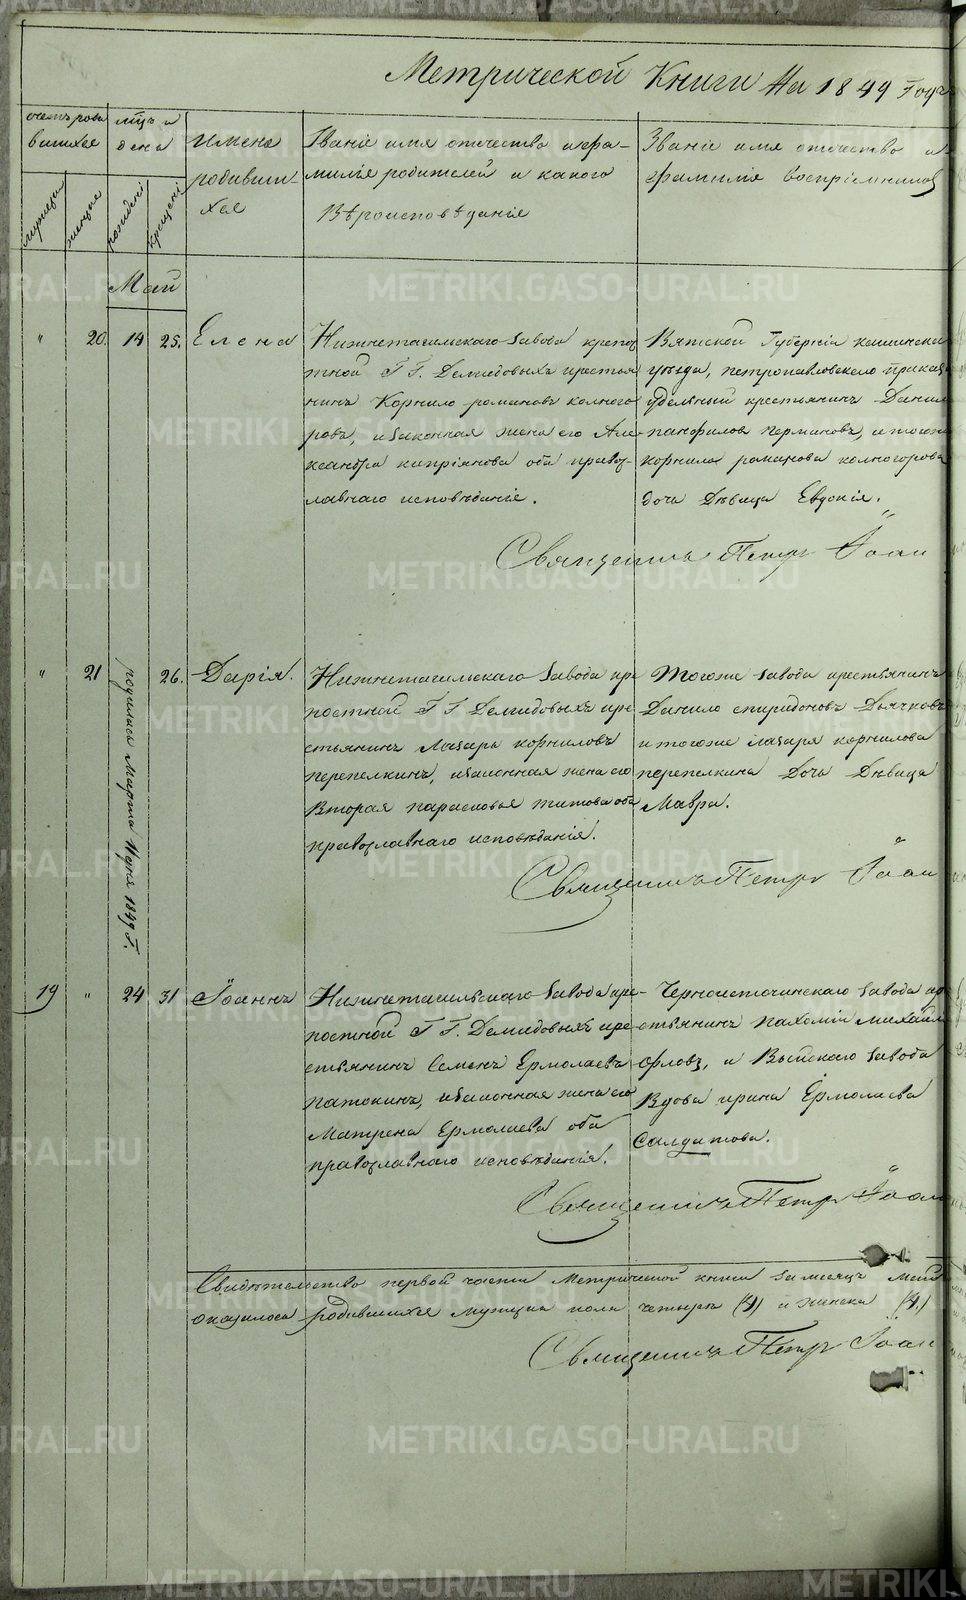 Метрической Книги На 1849 Годъ
счетъ роди
вшихся
мѣсць и
день
имена
родивши-
хся
Званіе имя отечество и фа-
милія родителей и какого
Вѣроисповѣданія
Званіе имя отечество и
фамилія воспріемниковъ
мужеска
женска
рожденія
крещенія
Май
" 20. 14 25. Елена
Нижнетагилскаго завода крепо
тной Г Г. Демидовыхъ крестья
нинъ Корнило романовъ колмого
ровъ, и законная жена его Але-
ксандра кипріянова оба правос-
лавнаго исповѣданія.
Вятской Губерніи
уѣзда, петропавловскаго приказа
удельный крестьянинъ Данил
панфиловъ перминовъ, и тогоже
корнила романова колмогорова
дочь Дѣвица Евдокія.
Священникъ Петръ Іоан
" 21 родилась Марта 1849 Г. 26. Дарія.
Нижнетагилскаго завода кре
постной Г Г Демидовыхъ кре
стьянинъ Лазарь корниловъ
перепелкинъ, и законная жена его
Вторая парасковья титова оба
православнаго исповѣданія.
Тогоже завода крестьянинъ
Данило спиридоновъ Дьячковъ
и тогоже лазаря корнилова
перепелкина Дочь Дѣвица
Мавра.
Священникъ Петръ Іоан
19 " 24 31 Іоаннъ
Нижнетагильскаго завода кре-
постной Г Г. Демидовыхъ кре
стьянинъ Семенъ Ермолаевъ
патокинъ, и законная жена его
Матрена Ермолаева оба
православнаго исповѣданія.
Черноисточинскаго завода кр
стьянинъ пахомій михайл
Орловъ, и Выйскаго завода
Вдова ирина Ермолаева
Салдатова.
Священникъ Петръ Іоан
Свидѣтельство первой части Метрической книги за месяцъ май
оказалось родившихся мужска пола четыре (4) и женска (4.)
Священникъ Петръ Іоан
METRIKI.GASO-URAL.RU